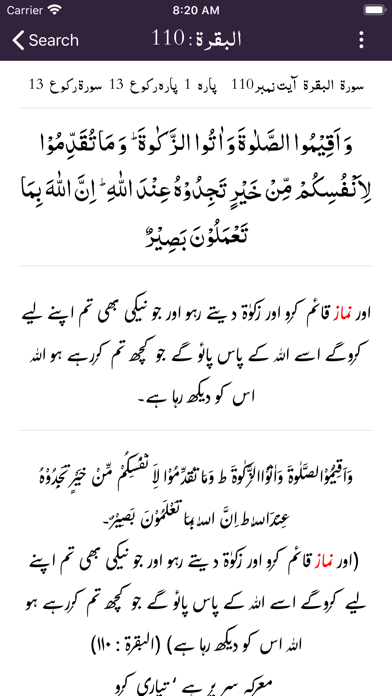 Carrier 8:20 AM
Search البقرة: 110
سورۃ البقرۃ آیت نمبر110 پارہ 1 پارہ رکوع 13 سورۃ رکوع 13
وَاَقِیۡمُوا الصَّلٰوۃَ وَاٰتُوا الزَّکٰوۃَ ؕ وَمَا تُقَدِّمُوۡا
لِاَنۡفُسِکُمۡ مِّنۡ خَیۡرٍ تَجِدُوۡہُ عِنۡدَ اللّٰہِ ؕ اِنَّ اللّٰہَ بِمَا
تَعۡمَلُوۡنَ بَصِیۡرٌ
اور نماز قائم کرو اور زکوٰۃ دیتے رہو اور جو نیکی بھی تم اپنے لیے
کروگے اسے اللہ کے پاس پائو گے جو کچھ تم کررہے ہو اللہ
اس کو دیکھ رہا ہے۔
وَاَقِیْمُوْاالصَّلٰوۃَ وَاٰتُوْاالزَّکٰوۃَ ط وَمَا تُقَدِّمُوْا لِاَ نْفُسِکُمْ مِّنْ خَیْرٍ تَجِدُوْہُ
عِنْدَاللہ ِط اِنَّ اللہ َ بِمَا تَعْلَمُوْنَ بَصِیْرٌ۔
(اور نماز قائم کرو اور زکوٰۃ دیتے رہو اور جو نیکی بھی تم اپنے
لیے کروگے اسے اللہ کے پاس پائو گے جو کچھ تم کررہے ہو
اللہ اس کو دیکھ رہا ہے) (البقرۃ : ١١٠)
معرکہ سر پر ہے ‘ تیاری کرو